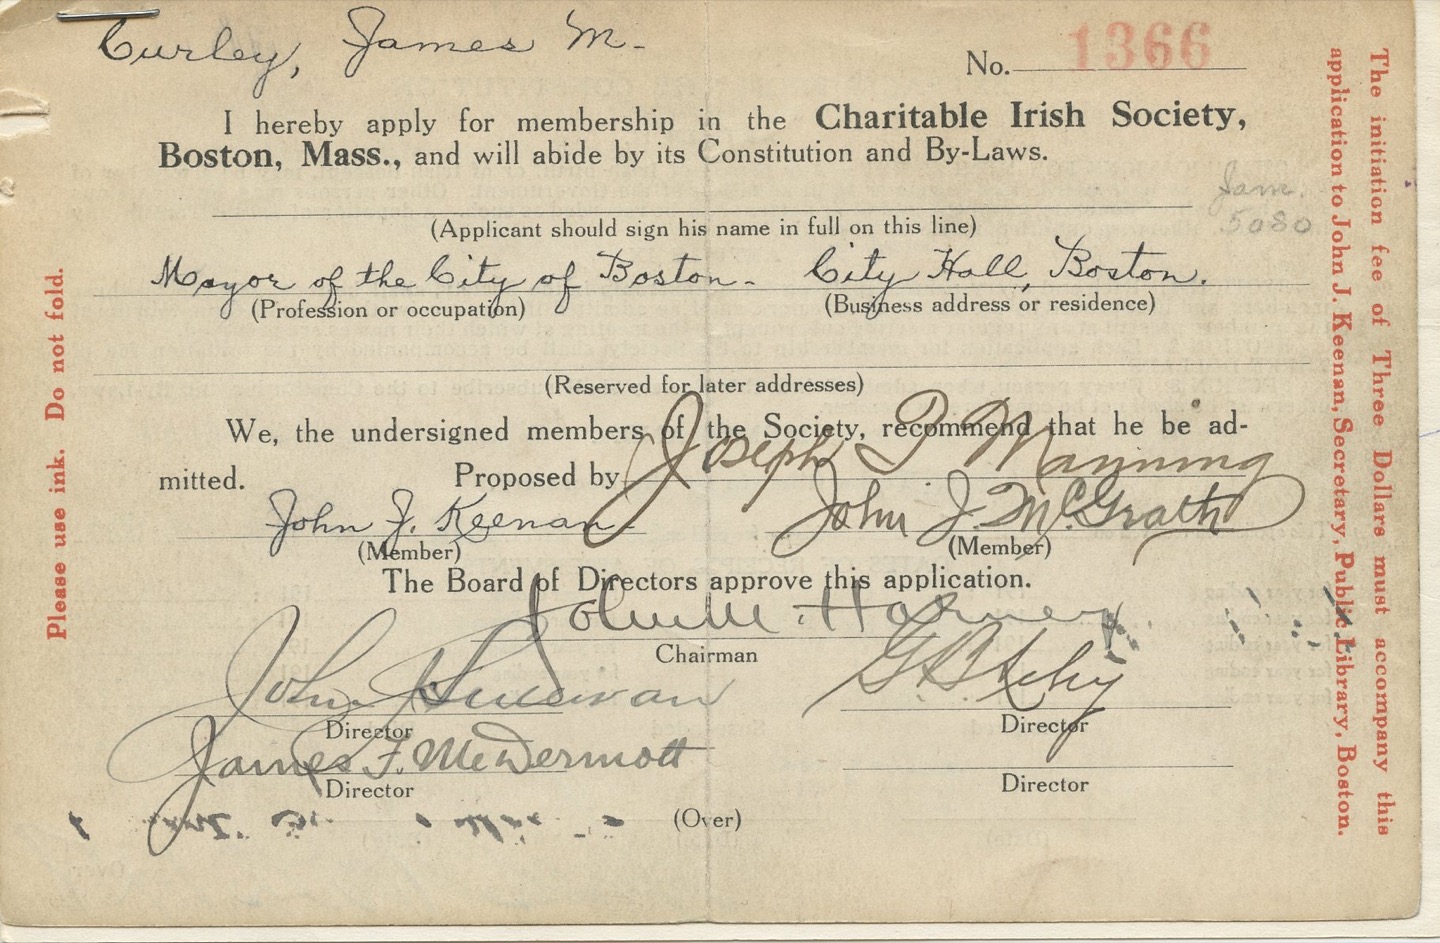 Curley, James M.
No. 1366
I hereby apply for membership in the Charitable Irish Society,
Boston, Mass., and will abide by its Constitution and By-Laws.
Jam.
5080
(Applicant should sign his name in full on this line)
Mayor of the City of Boston. City Hall, Boston.
(Profession or occupation) (Business address or residence)
(Reserved for later addresses)
We, the undersigned members of the Society, recommend that he be ad-
mitted. Proposed by Joseph P Manning
John J. Keenan John J. McGrath
(Member) (Member)
The Board of Directors approve this application.
John M.
Chairman
John J Sullivan
Director Director
James F. McDermott
Director Director
(Over)
Please use ink. Do not fold.
The initiation fee of Three Dollars must accompany this
application to John J. Keenan, Secretary, Public Library, Boston.